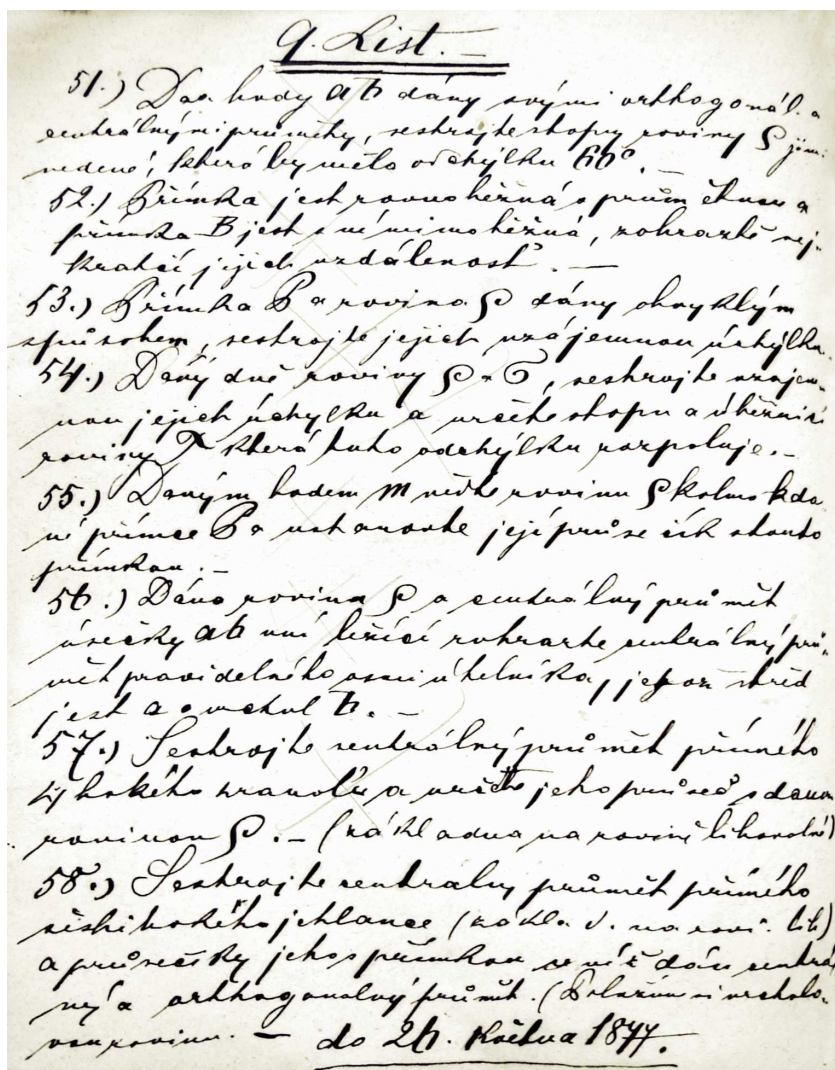 9. List. –
51.) Dva body a b dány svými orthogonál. a
centrálnými průměty, sestrojte stopy roviny ρ jimi
vedené, která by měla odchýlku 60°. –
52.) Přímka jest rovnoběžná s průmětnou a
přímka B jest s ní mimoběžná, zobrazte nej-
kratčí jejich vzdálenosť. –
53.) Přímka P a rovina ρ dány obvyklým
spůsobem, sestrojte jejich vzájemnou úchylku.
54.) Dány dvě roviny ρ a σ, sestrojte vzájem-
nou jejich úchylku a určete stopu a úběžnici
roviny τ která tuto odchýlku rozpoluje. –
55.) Daným bodem m veďte rovinu ρ kolmo k da-
né přímce P a ustanovte její průsečík s touto
přímkou. –
56.) Dána rovina ρ a centrálný průmět
úsečky ab v ní ležící zobrazte centrálný prů-
mět pravidelného osmiúhelníka, jehož střed
jest a a vrchol b. –
57.) Sestrojte centrálný průmět přímého
kého hranolu a určete jeho průseč s danou
rovinou ρ. – (základna na rovině libovolné)
58.) Sestrojte centralny průmět přímého
šestibokého jehlance (zákla d. na rovi. lib)
a průsečíky jeho s přímkou v níž dán centrá
ný a orthogonalný průmět. (Položím si vrcholo-
vou rovinu. – do 26. Května 1877.